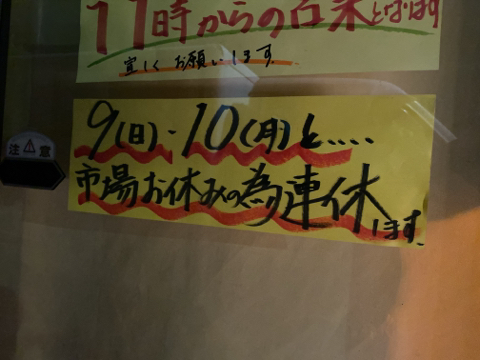 11時からの
宜しくお願いします。
注意
9(日)・10(月)と....
市場お休みの為連休
します。